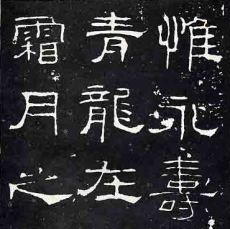 惟永壽
青龍在
霜月之